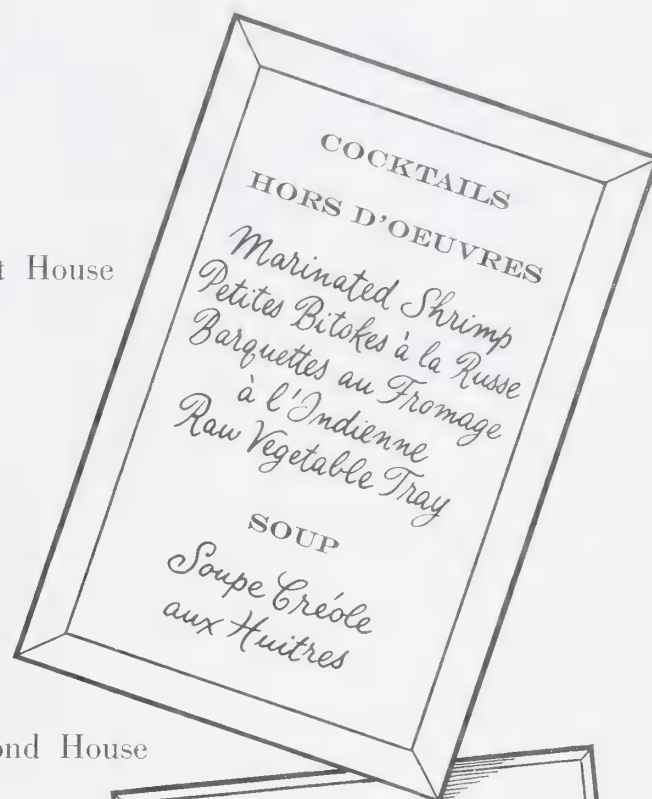 House
COCKTAILS
HORS D'OEUVRES
Marinated Shrimp
Petites Bitokes à la Russe
Barquettes au Fromage
à l'Indienne
Raw Vegetable Tray
SOUP
Soupe Créole
aux Huitres
House